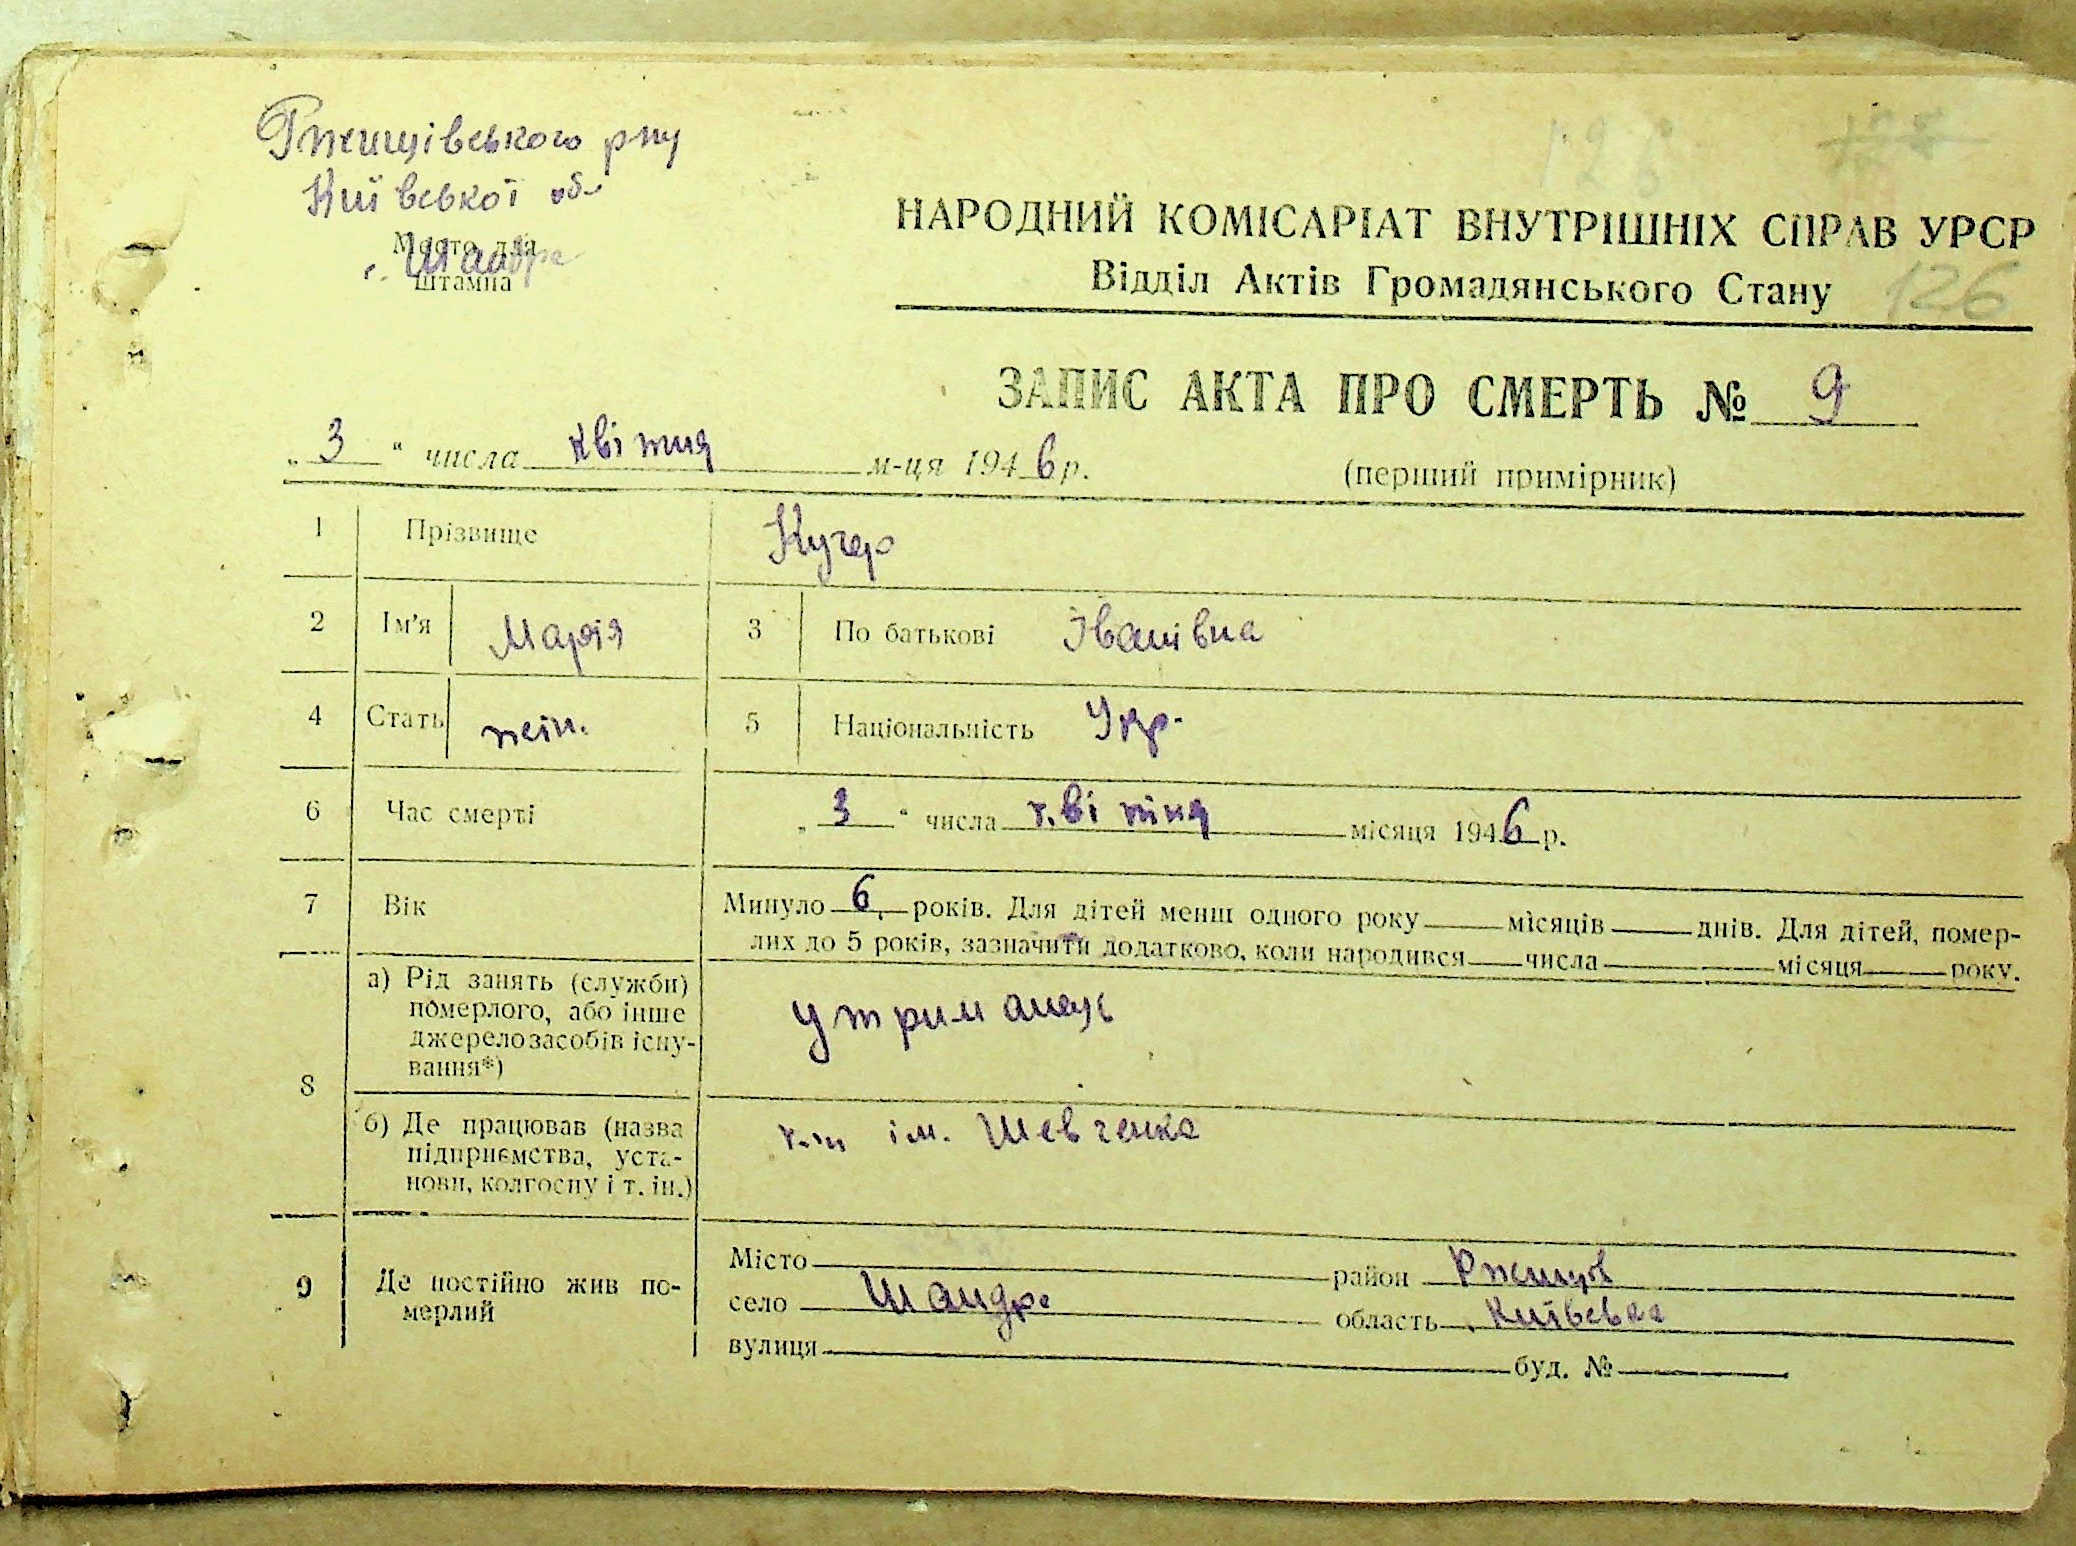 Ржищівського р-ну
Київської об
Место для
с. Шандра
штампа
126
НАРОДНИЙ КОМІСАРІАТ ВНУТРІШНІХ СПРАВ УРСР
Відділ Актів Громадянського Стану 126
ЗАПИС АКТА ПРО СМЕРТЬ № 9
„ 3 “ числа квітня м-ця 1946 р.
(перший примірник)
1 Прізвище Кучер
2 Ім'я Марія 3 По батькові Іванівна
4 Стать жін. 5 Національність Укр.
6 Час смерті „ 3 “ числа квітня місяця 1946 р.
7 Вік Минуло 6 років. Для дітей менш одного року місяців днів. Для дітей, помер-
лих до 5 років, зазначити додатково, коли народився числа місяця року.
8 а) Рід занять (служби)
померлого, або інше
джерело засобів існу-
вання*)
утриманец
б) Де працював (назва
підприємства, уста-
нови, колгоспу і т. ін.)
ім. Шевченка
9 Де постійно жив по-
мерлий
Місто район Ржищів
село Шандра область Київська
вулиця буд. №